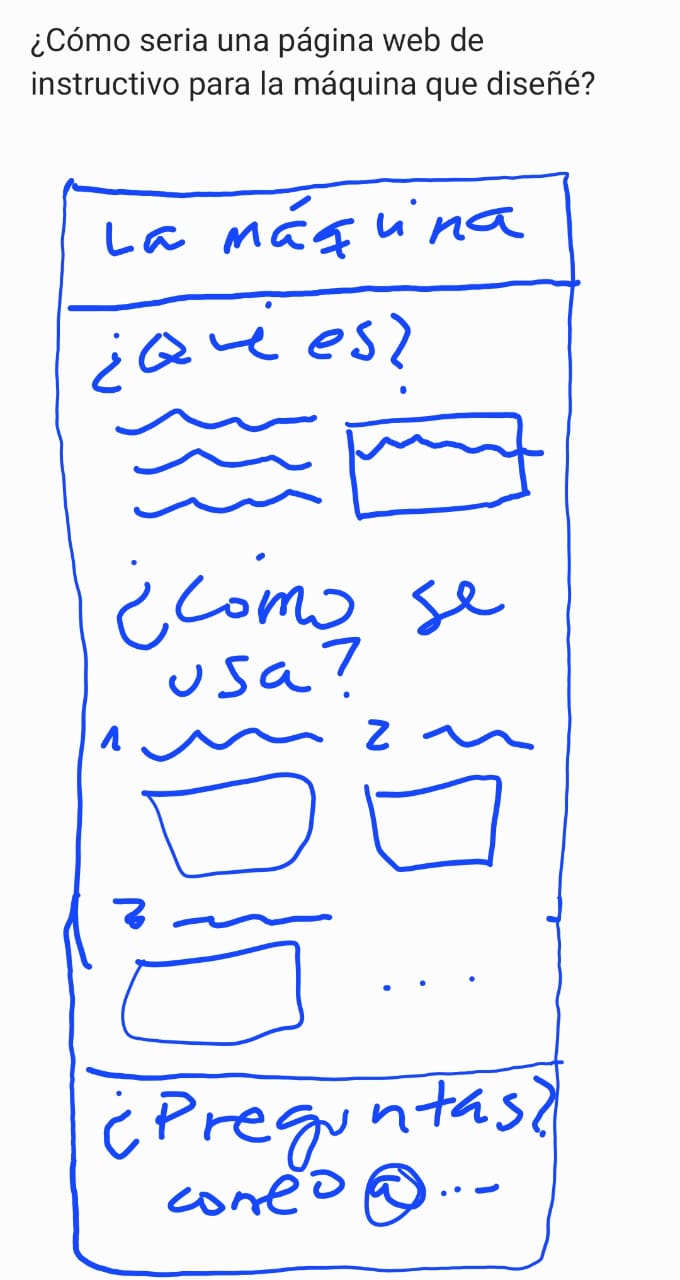 ¿Cómo seria una página web de
instructivo para la máquina que diseñé?
La máquina
¿Qué es?
¿Cómo se
usa?
1
2
3
...
¿Preguntas?
correo @...